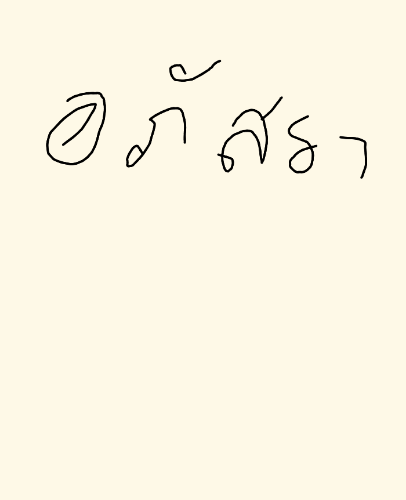 อภัสรา